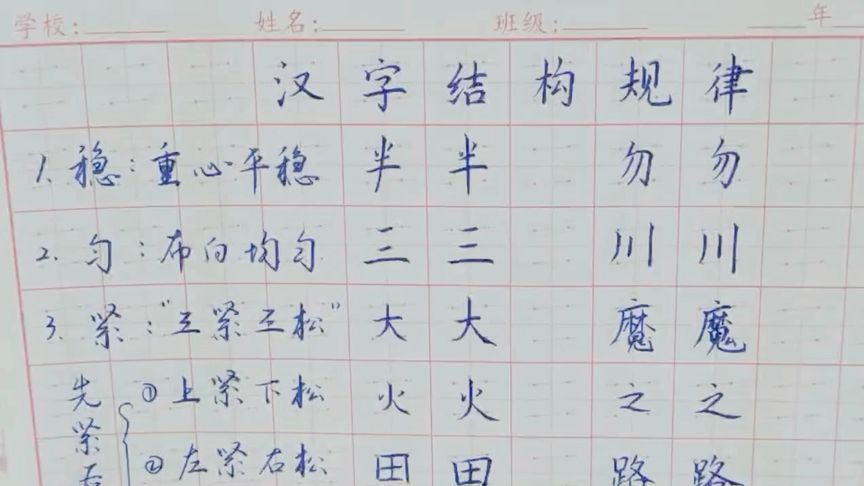 学校: 姓名: 班级: 年
汉字结构规律
1. 稳:重心平稳 半 半 勿 勿
2. 匀:布白均匀 三 三 川 川
3. 紧:"三紧三松" 大 大 魔 魔
先紧 ①上紧下松 火 火 之 之
②左紧右松 田 田 路 路